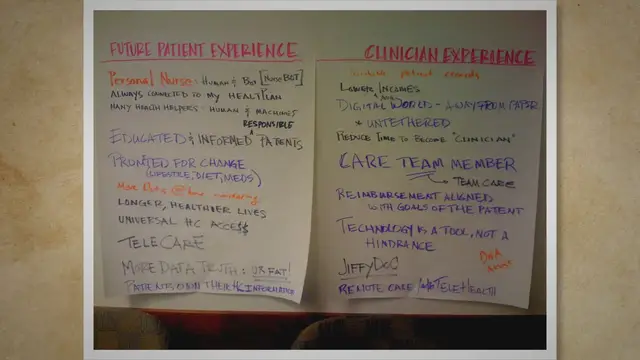 FUTURE PATIENT EXPERIENCE
Personal Nurse: HUMAN & BOT [NURSEBOT]
ALWAYS CONNECTED TO MY HEALTPLAN
MANY HEALTH HELPERS: HUMAN & MACHINES
RESPONSIBLE
EDUCATED & INFORMED ^ PATIENTS
PROMPTED FOR CHANGE
(LIFESTYLE, DIET, MEDS)
More Data @ home monitoring
LONGER, HEALTHIER LIVES
UNIVERSAL HC ACCE$$
TELECARE
MORE DATA TRUTH: UR FAT!
PATIENTS OWN THEIR HC INFORMATION
CLINICIAN EXPERIENCE
patient records
LOWER INCOMES
DIGITAL WORLD - AWAY FROM PAPER
& UNTETHERED
REDUCE TIME TO BECOME "CLINICIAN"
CARE TEAM MEMBER
TEAM CARE
REIMBURSEMENT ALIGNED
WITH GOALS OF THE PATIENT
TECHNOLOGY IS A TOOL, NOT A
HINDRANCE
JIFFYDOC
REMOTE CARE TELEHEALTH